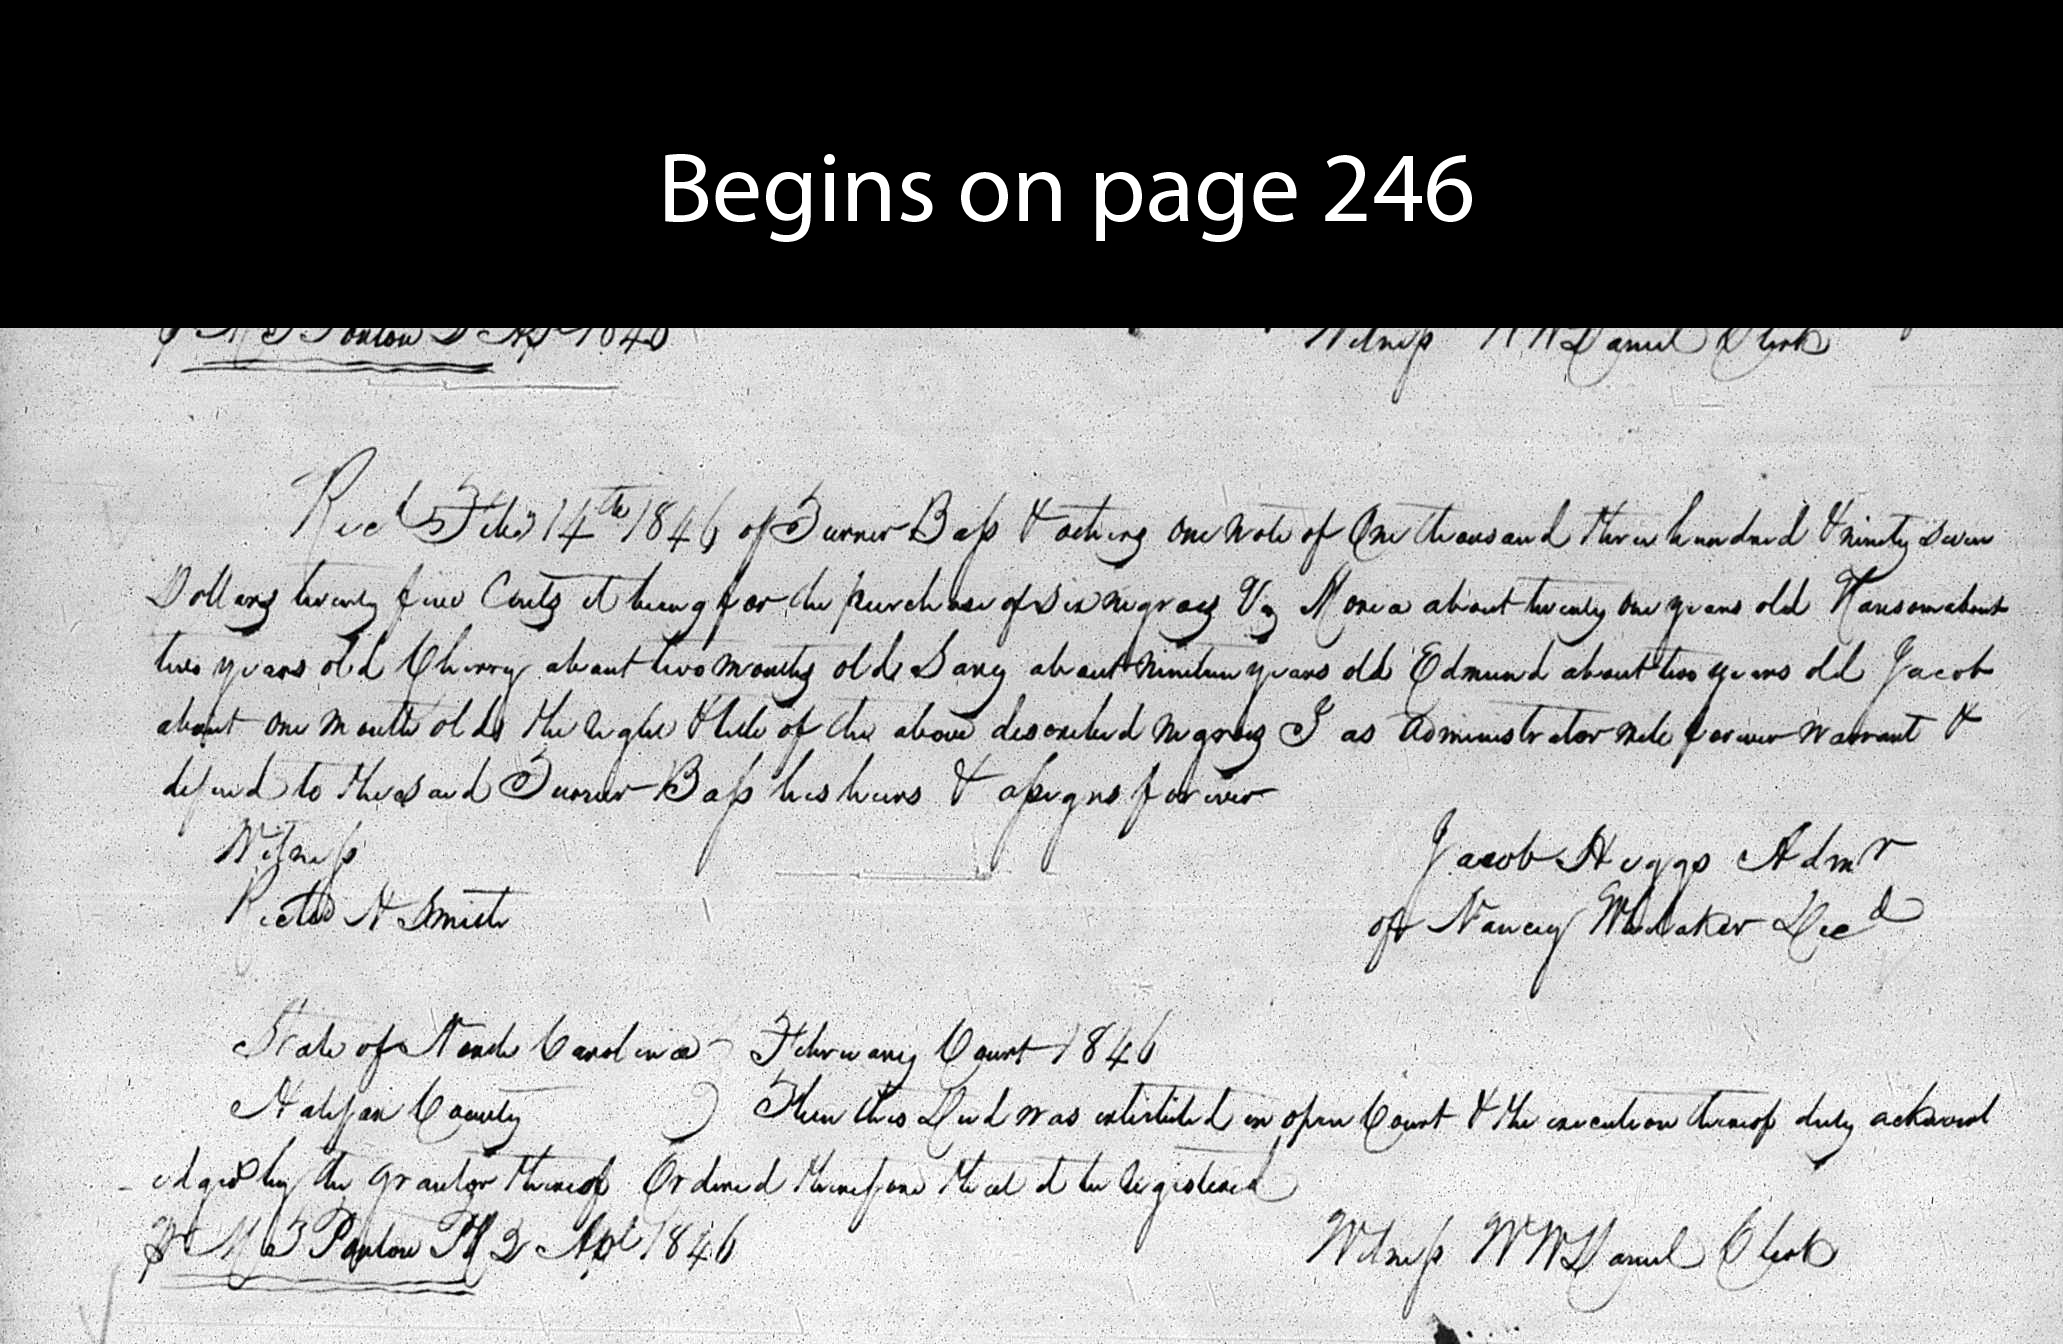 Begins on page 246
M T Ponton D Apl 1846 Witness W W Daniel Clerk
Recd Feby 14th 1846 of Turner Bass & acting one note of One thousand three hundred & ninety seven
Dollars twenty five Cents it being for the purchase of six negroes Viz Morica about twenty one years old Ransom about
two years old Cherry about two months old Sary about nineteen years old Edmund about two years old Jacob
about one month old the right & title of the above described negroes I as administrator will forever warrant &
defend to the said Turner Bass his heirs & assigns forever
Witness
N Smith
Jacob Higgs Admr
of Nancy Whitaker Decd
State of North Carolina February Court 1846
Halifax County } Then this Deed was exhibited in open Court & the execution thereof duly acknowl
edged by the grantor thereof Ordered therefore that it be registered
M T Ponton PR 2 Apl 1846 Witness W W Daniel Clerk